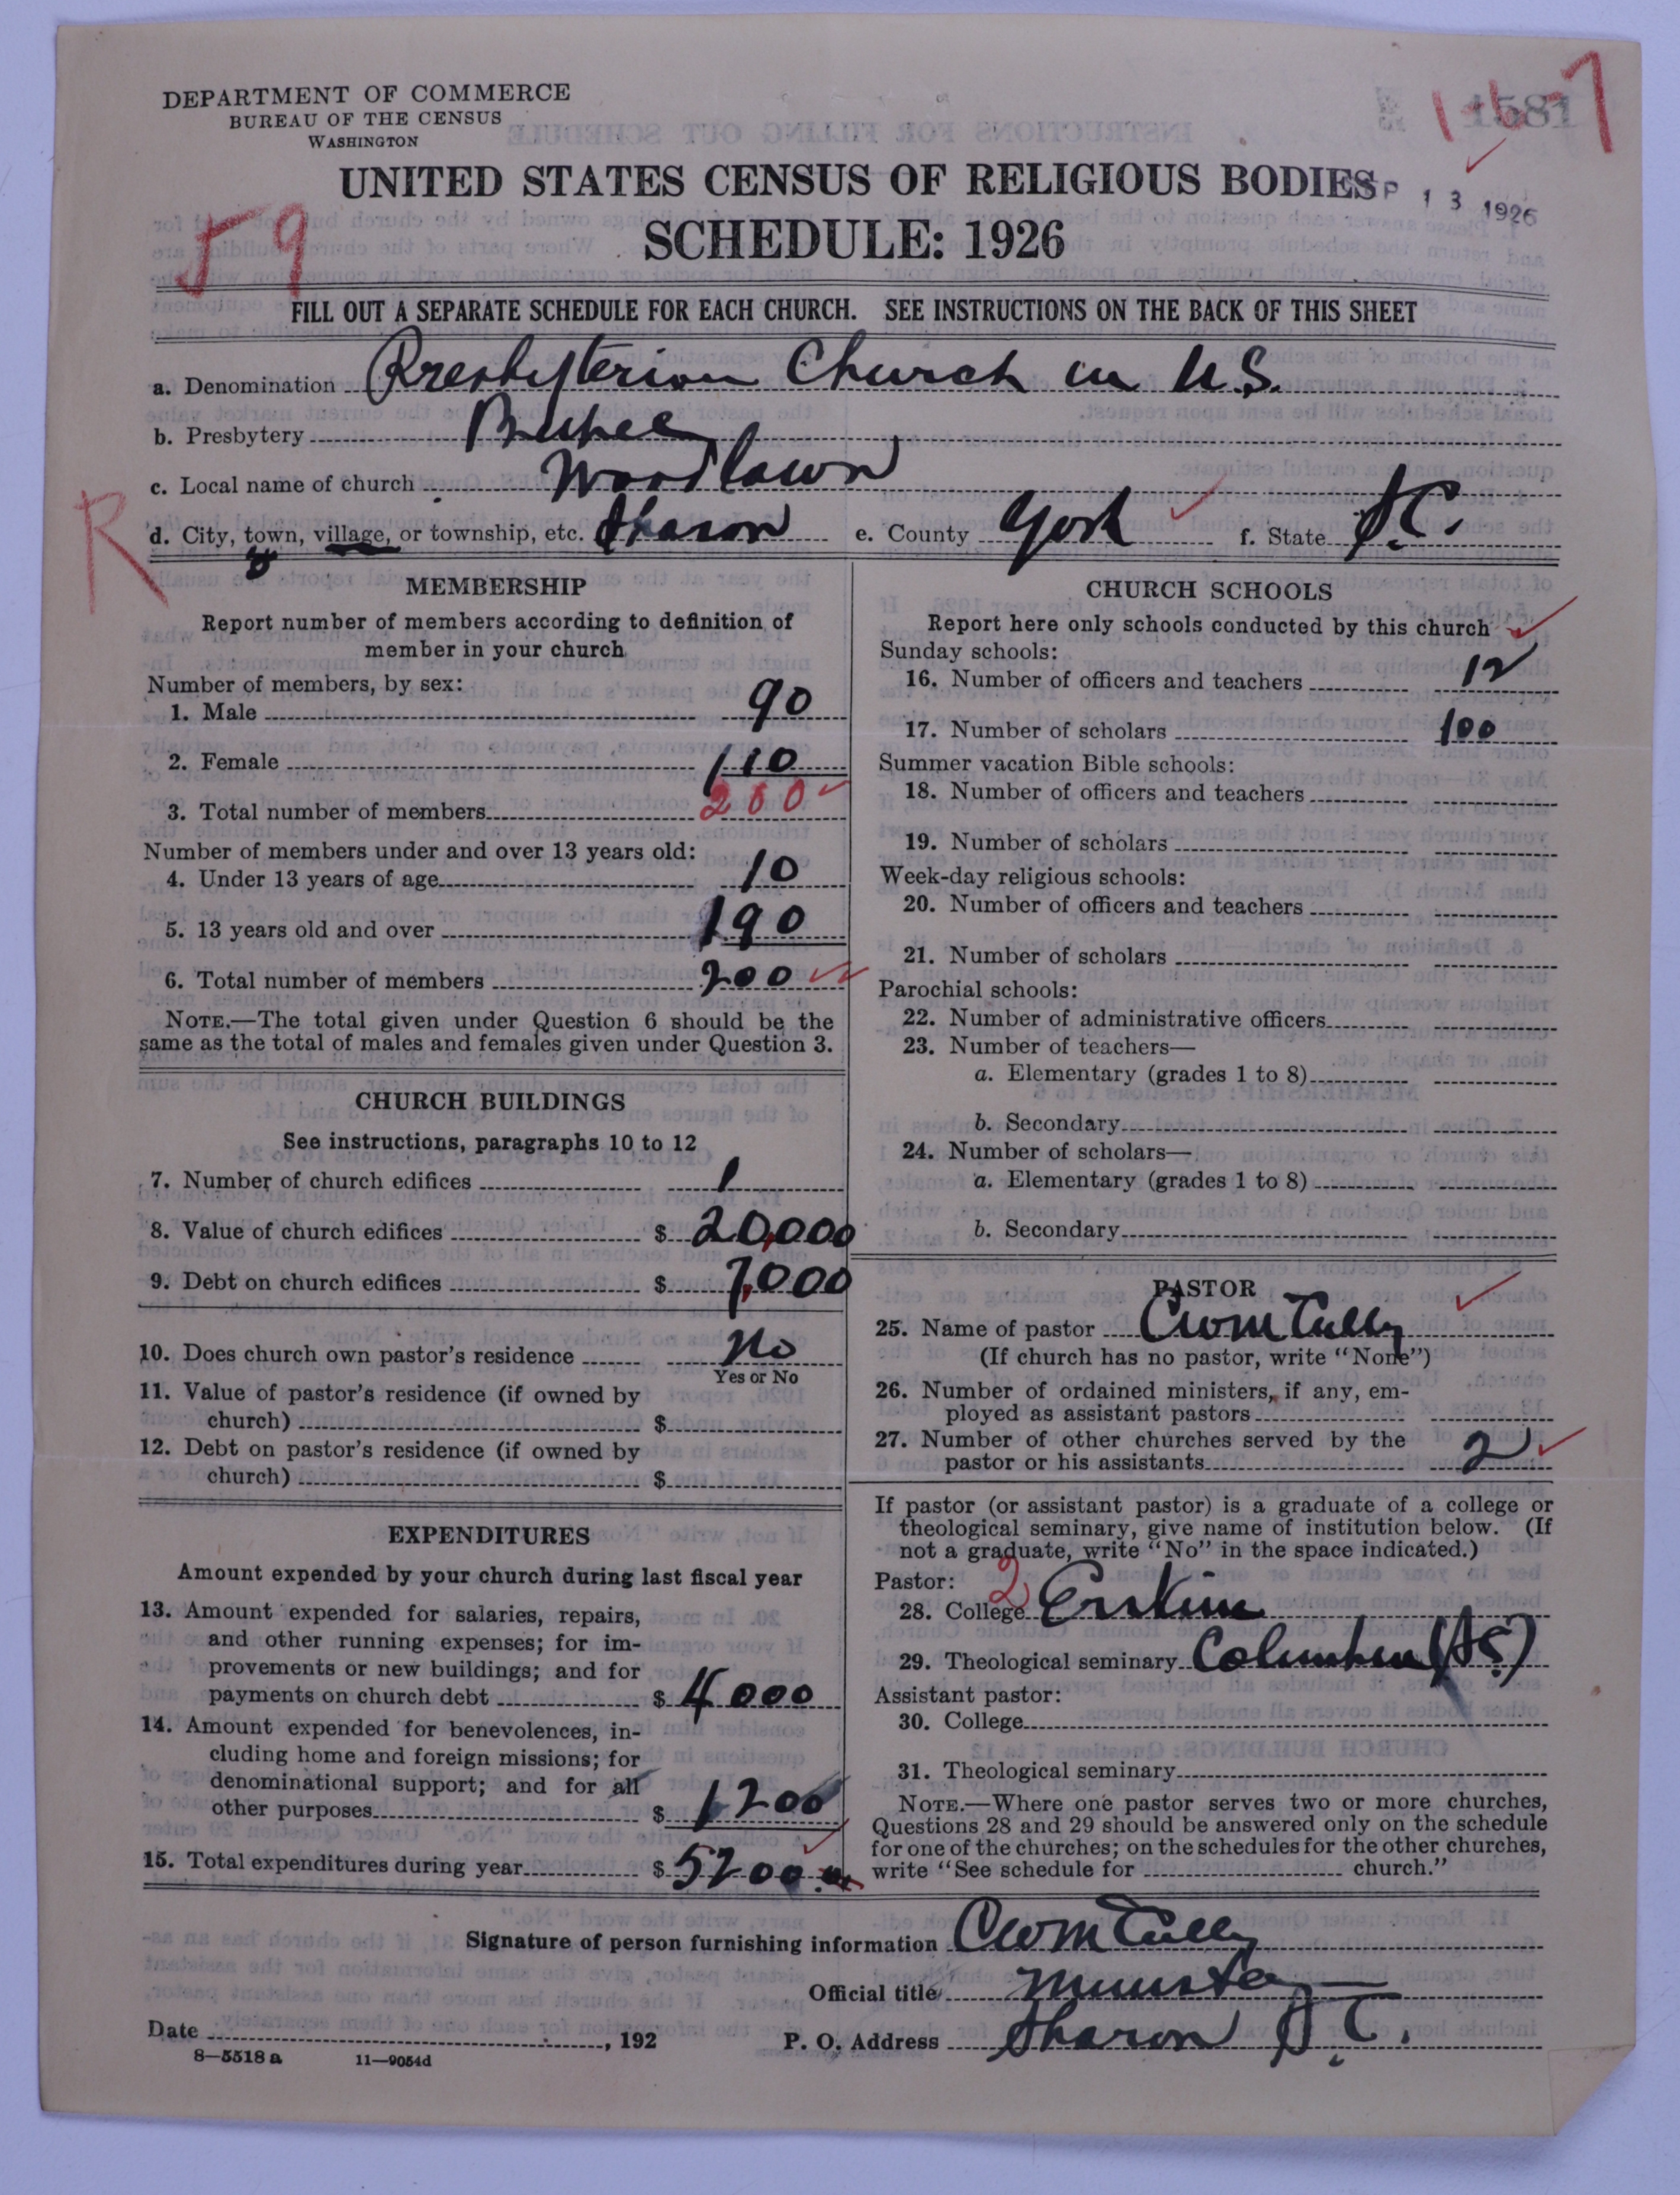 DEPARTMENT OF COMMERCE
BUREAU OF THE CENSUS
WASHINGTON
1581
UNITED STATES CENSUS OF RELIGIOUS BODIES
P 13 1926
SCHEDULE: 1926
59
FILL OUT A SEPARATE SCHEDULE FOR EACH CHURCH. SEE INSTRUCTIONS ON THE BACK OF THIS SHEET
a. Denomination Presbyterian Church in U.S.
b. Presbytery Bethel
c. Local name of church Woodlawn
R
d. City, town, village, or township, etc. Sharon e. County York f. State S.C.
MEMBERSHIP
Report number of members according to definition of
member in your church
Number of members, by sex:
1. Male 90
2. Female 110
3. Total number of members 200
Number of members under and over 13 years old:
4. Under 13 years of age 10
5. 13 years old and over 190
6. Total number of members 200
NOTE.—The total given under Question 6 should be the
same as the total of males and females given under Question 3.
CHURCH BUILDINGS
See instructions, paragraphs 10 to 12
7. Number of church edifices 1
8. Value of church edifices $ 20,000
9. Debt on church edifices $ 7,000
10. Does church own pastor's residence No
Yes or No
11. Value of pastor's residence (if owned by
church) $
12. Debt on pastor's residence (if owned by
church) $
EXPENDITURES
Amount expended by your church during last fiscal year
13. Amount expended for salaries, repairs,
and other running expenses; for im-
provements or new buildings; and for
payments on church debt $ 4000
14. Amount expended for benevolences, in-
cluding home and foreign missions; for
denominational support; and for all
other purposes $ 1200
15. Total expenditures during year $ 5200
CHURCH SCHOOLS
Report here only schools conducted by this church
Sunday schools:
16. Number of officers and teachers 12
17. Number of scholars 100
Summer vacation Bible schools:
18. Number of officers and teachers
19. Number of scholars
Week-day religious schools:
20. Number of officers and teachers
21. Number of scholars
Parochial schools:
22. Number of administrative officers
23. Number of teachers—
a. Elementary (grades 1 to 8)
b. Secondary
24. Number of scholars—
a. Elementary (grades 1 to 8)
b. Secondary
PASTOR
25. Name of pastor CWM Tully
(If church has no pastor, write "None")
26. Number of ordained ministers, if any, em-
ployed as assistant pastors
27. Number of other churches served by the
pastor or his assistants 2
If pastor (or assistant pastor) is a graduate of a college or
theological seminary, give name of institution below. (If
not a graduate, write "No" in the space indicated.)
Pastor: 2
28. College Erskine
29. Theological seminary Columbia (S.C.)
Assistant pastor:
30. College
31. Theological seminary
NOTE.—Where one pastor serves two or more churches,
Questions 28 and 29 should be answered only on the schedule
for one of the churches; on the schedules for the other churches,
write "See schedule for church."
Signature of person furnishing information CWM Tully
Official title Minister
Date , 192 P. O. Address Sharon S.C.
8—5518 a 11—9054d